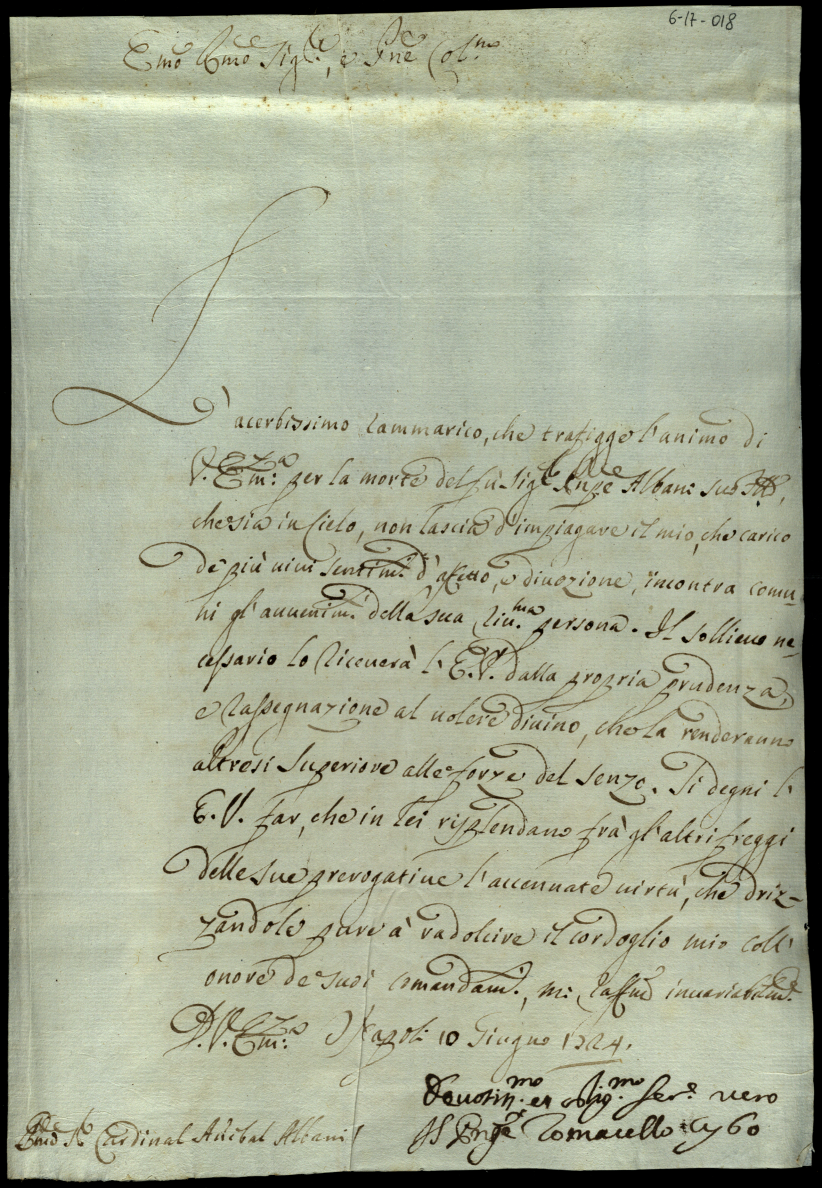 6-17-018
Emo Rmo Sig.re, e Pne Col.mo
L'acerbissimo rammarico, che trafigge l'animo di
V. Em.za per la morte del fù Sig.re Pnpe Albani suo Pre,
che sia in Cielo, non lascia d'impiagare il mio, che carico
de più vivi sentim.ti d'affetto, e divozione, incontra comu-
ni gl'avvenim.ti della sua riv.ma persona. Il sollievo ne-
cessario lo riceverà l'E.V. dalla propria prudenza,
e rassegnazione al volere divino, che la renderanno
altresi superiore alle forze del senzo. Si degni l'
E.V. far, che in lei risplendano frà gl'altri freggi
delle sue prerogative l'accennate virtù, che driz-
zandole pure à radolcire il cordoglio mio coll'
onore de suoi comandam.ti, mi raffmo invariabilm.te
D.V. Em.za Napoli 10 Giugno 1724.
Devotis.mo et oblig.mo Ser.e vero
Il Pnpe Tomacello Cybo
Emo Sr. Cardinal Anibal Albani